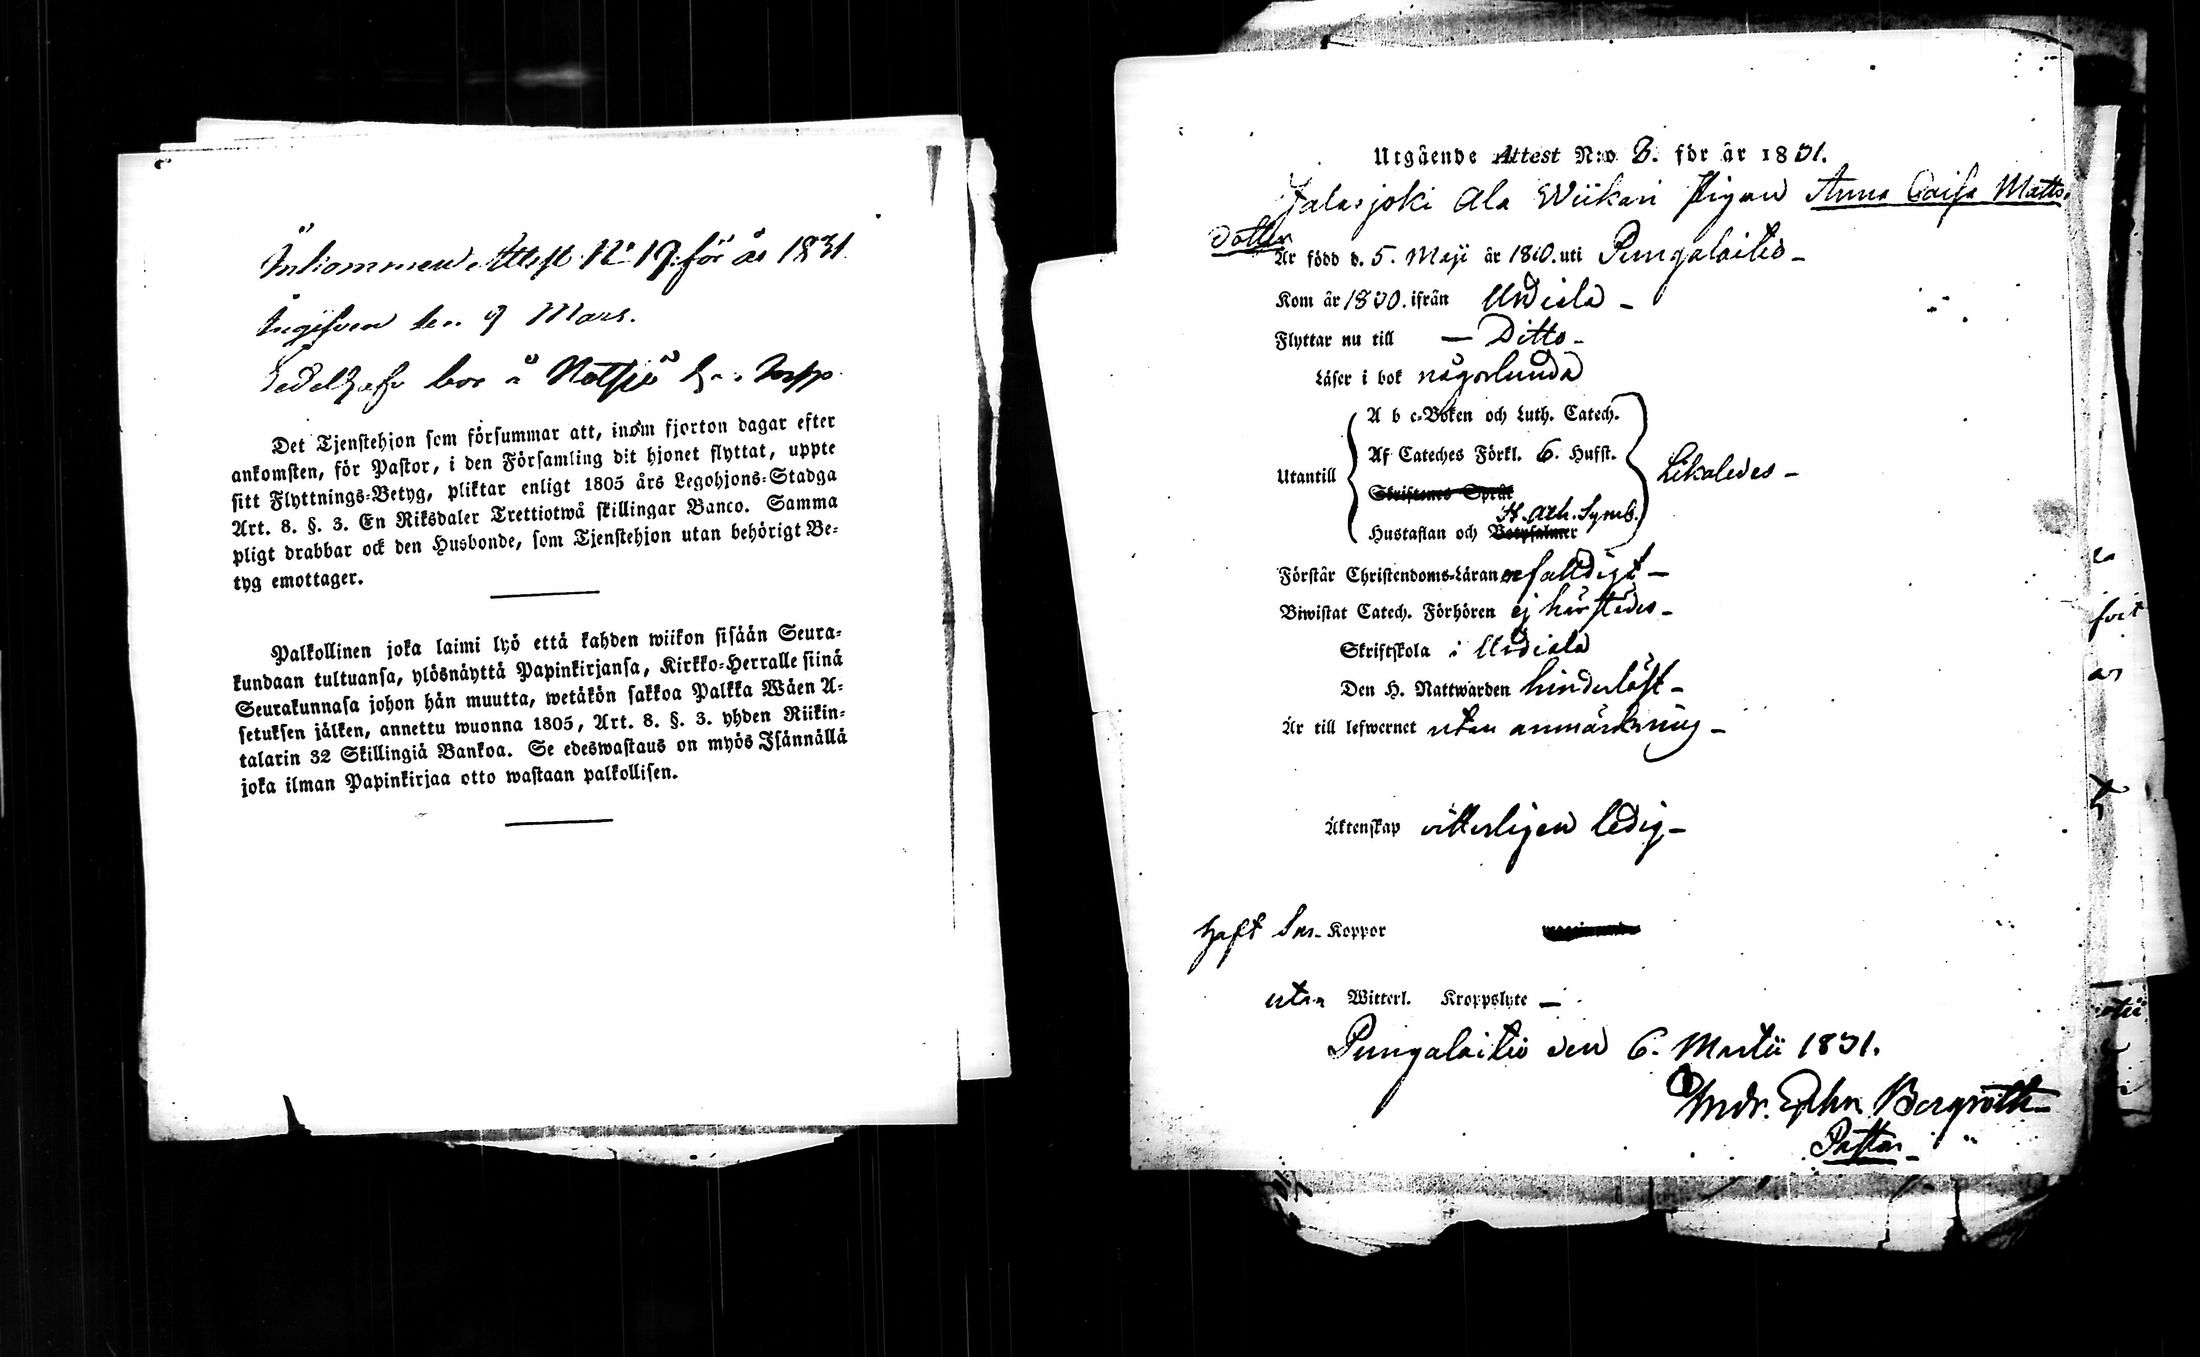 Inkommen Attest No 19 för år 1831
Ingifven den 9 Mars.
Sedelhafv bor å Notsjö Torpp
Det Tjenstehjon som försummar att, inom fjorton dagar efter
ankomsten, för Pastor, i den Församling dit hjonet flyttat, uppte
sitt Flyttnings-Betyg, pliktar enligt 1805 års Legohjons-Stadga
Art. 8. §. 3. En Riksdaler Trettiotwå skillingar Banco. Samma
pligt drabbar ock den Husbonde, som Tjenstehjon utan behörigt Be-
tyg emottager.
Palkollinen joka laimi lyö että kahden wiikon sisään Seura-
kundaan tultuansa, ylösnäyttä Papinkirjansa, Kirkko-Herralle siinä
Seurakunnasa johon hän muutta, wetäkön sakkoa Palkka Wäen A-
setuksen jälken, annettu wuonna 1805, Art. 8. §. 3. yhden Riikin-
talarin 32 Skillingiä Bankoa. Se edeswastaus on myös Isännällä
joka ilman Papinkirjaa otto wastaan palkollisen.
Utgående Attest N:o 3. för år 1831.
Jalasjoki Ala Wiikari Pigan Anna Caisa Matts
dotter
Är född d. 5. Maji år 1810. uti Pungalaitio -
Kom år 1830. ifrån Urdiala -
Flyttar nu till - Ditto -
Läser i bok någorlunda
A b c-Boken och Luth. Catech.
Af Cateches Förkl. 6. Hufst.
Utantill Likaledes -
Skriftenes Språk
St. Ath. Symb.
Hustaflan och Botpsalmer
Förstår Christendoms-Läran enfalldigt -
Biwistat Catech. Förhören ej härstädes -
Skriftskola i Urdiala
Den H. Nattwarden hinderlöst -
Är till lefwernet utan anmärkning -
Äktenskap vitterligen ledig -
haft Sm. Koppor
utan Witterl. Kroppslyte -
Pungalaitio den 6. Martii 1831.
Andr. Ephr. Bergroth
Pastor